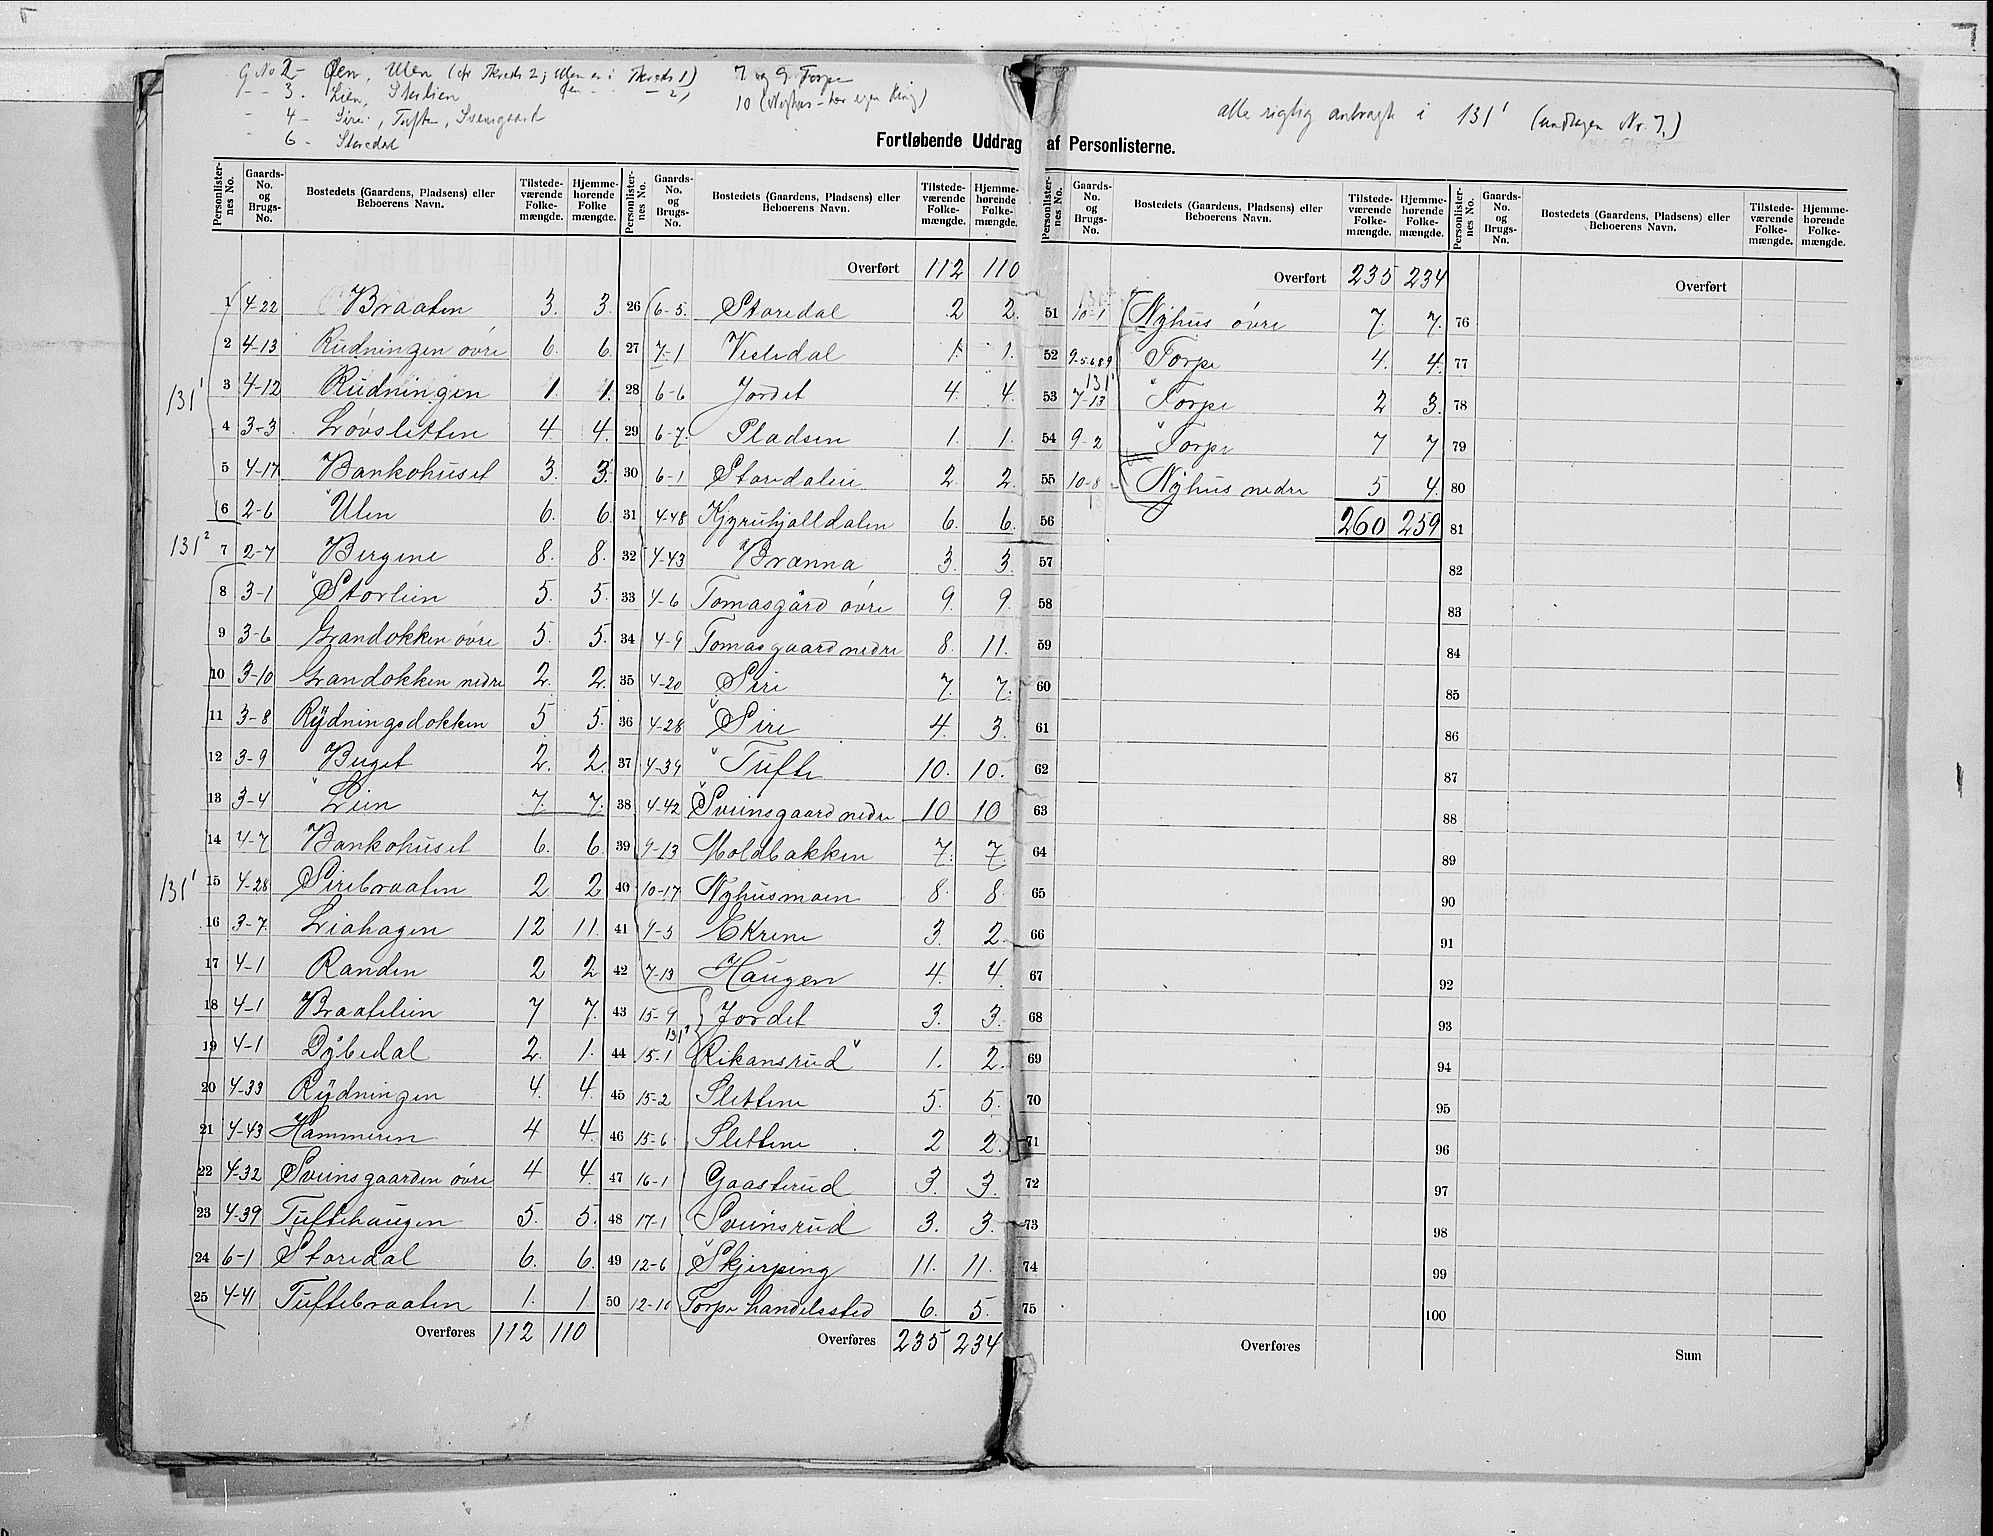 G No 2- Øen, Ulen (cfr Tkreds 2; Ulen er i Tkreds 1)
3. Lien, Storlien
4 - Sire, Tufte, Sveinsgaard
6 - Storedal
7 og 9. Torpe
10 (Nyhus -
alle rigtig anbragt i 131¹ (undtagen Nr. 7.)
Fortløbende Uddrag af Personlisterne.
Personlister-nes No. Gaards-No. og Brugs-No. Bostedets (Gaardens, Pladsens) eller Beboerens Navn. Tilstede-værende Folke-mængde. Hjemme-hørende Folke mængde.
1 4-22 Braaten 3. 3.
2 4-13 Rudningen övre 6. 6.
131¹
3 4-12 Rudningen 1. 1.
4 3-3 Lövsletten 4. 4.
5 4-17 Bankohuset 3. 3.
6 2-6 Ulen 6. 6.
131²
7 2-7 Bergene 8. 8.
8 3-1 Storlien 5. 5.
9 3-6 Grandokken övre 5. 5.
10 3-10 Grandokken nedre 2. 2.
11 3-8 Rydningsdokken 5 5.
12 3-9 Beiget 2. 2.
13 3-4 Lien 7. 7.
14 4-7 Bankohuset 6. 6.
131¹
15 4-28 Sirebraaten 2 2
16 3-7. Liahagen 12 11.
17 4-1 Randen 2 2
18 4-1 Braatelien 7 7.
19 4-1 Dybedal 2. 1.
20 4-33 Rydningen 4. 4.
21 4-43 Hammeren 4 4.
22 4-32 Sveinsgaarden övre 4 4.
23 4-39 Tuftehaugen 5. 5.
24 6-1 Storedal 6. 6.
25 4-41 Tuftebraaten 1. 1.
Overføres 112 110
Personlister-nes No. Gaards-No. og Brugs-No. Bostedets (Gaardens, Pladsens) eller Beboerens Navn. Tilstede-værende Folke-mængde. Hjemme-hørende Folke-mængde.
Overført 112 110
26 6-5. Storedal 2 2.
27 7-1 Vesledal 1. 1.
28 6-6 Jordet 4. 4.
29 6-7. Pladsen 1. 1.
30 6-1 Storedalen 2. 2.
31 4-48 Kjyruhjalldalen 6. 6.
32 4-43 Brænna 3. 3.
33 4-6 Tomasgård övre 9. 9.
34 4-9 Tomasgaard nedre 8. 11.
35 4-20 Sire 7. 7.
36 4-28 Sire 4. 3.
37 4-39 Tufte 10. 10.
38 4-42 Sveinsgaard nedre 10 10
39 9-13 Moldbakken 7. 7.
40 10-17 Nyhusmoen 8. 8.
41 4-5 Ekrene 3. 2.
42 7-13 Haugen 4. 4.
43 15-9 Jordet 3. 3.
131²
44 15-1 Rikansrud 1. 2.
45 15-2 Slettene 5. 5.
46 15-6 Slettene 2 2.
47 16-1 Gaasterud 3. 3.
48 17-1 Sveinsrud 3. 3.
49 12-6 Skjerping 11. 11.
50 12-10 Torpe handelssted 6. 5.
Overføres 235 234
Personlister-nes No. Gaards-No. og Brugs-No. Bostedets (Gaardens, Pladsens) eller Beboerens Navn. Tilstede-værende Folke-mængde. Hjemme-hørende Folke-mængde.
Overført 235 234
51 10-1 Nyhus övre 7. 7.
52 9-5.6.8.9 Torpe 4. 4.
131¹
53 7-13 Torpe 2 3.
54 9-2 Torpe 7 7
55 10-8 Nyhus nedre 5 4.
56 260 259
57
58
59
60
61
62
63
64
65
66
67
68
69
70
71
72
73
74
75
Overføres
Personlister-nes No. Gaards-No. og Brugs-No. Bostedets (Gaardens, Pladsens) eller Beboerens Navn. Tilstede-værende Folke-mængde. Hjemme-hørende Folke-mængde.
Overført
76
77
78
79
80
81
82
83
84
85
86
87
88
89
90
91
92
93
94
95
96
97
98
99
100
Sum